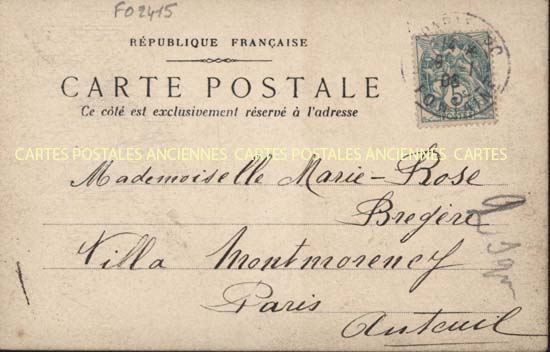 FO2415
RÉPUBLIQUE FRANÇAISE
CARTE POSTALE
Ce côté est exclusivement réservé à l'adresse
CARTES POSTALES ANCIENNES CARTES POSTALES ANCIENNES CARTES
Mademoiselle Marie-Rose
Bregère
Villa Montmorency
Paris
Auteuil